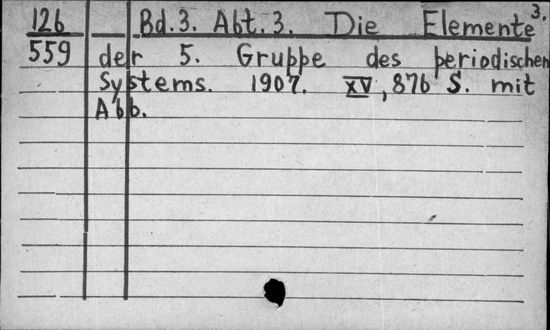 3.
126 Bd. 3. Abt. 3. Die Elemente
559 der 5. Gruppe des periodischen
Systems. 1907. XV, 876 S. mit
Abb.